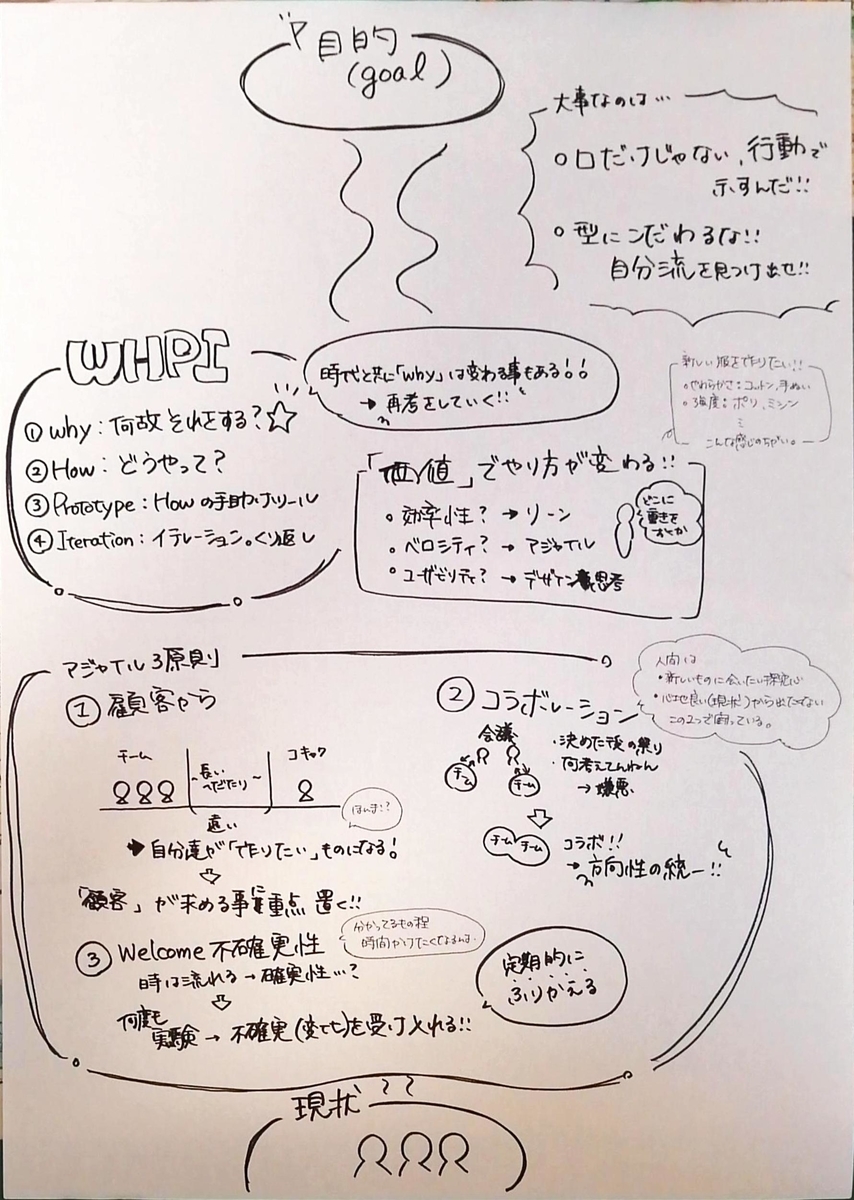 目的
(goal)
大事なのは…
○口だけじゃない、行動で
示すんだ!!
○型にこだわるな!!
自分流を見つけ出せ!!
WHPI
①why：何故それをする？☆
②How：どうやって？
③Prototype：Howの手助けツール
④Iteration：イテレーション。くり返し
時代と共に「why」は変わる事もある!!
→再考をしていく!!
新しい服を作りたい!!
○やわらかさ：コットン、手ぬい
○強度：ポリ、ミシン
こんな感じのちがい。
「価値」でやり方が変わる!!
・効率性？→リーン
・ベロシティ？→アジャイル
・ユーザビリティ？→デザイン思考
どこに
重きを
おくか
アジャイル3原則
①顧客から
チーム
長い
へだたり～
コキャク
遠い
ほんま!?
➡自分達が「作りたい」ものになる!
「顧客」が求める事に重点置く!!
②コラボレーション
会議
チーム
チーム
・決めた後の
・何考えてんねん
→嫌悪
チーム チーム
コラボ!!
→方向性の統一!!
人間は
・新しいものに会いたい探究心
・心地良い(現状)から出たくない
この2つで困っている。
③Welcome不確実性
分かってるもの程
時間かけたくなるんよ.
時は流れる→確実性…?
何度も
実験→不確実(変化)を受け入れる!!
定期的に
ふりかえる
現状